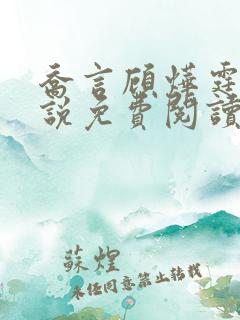 喬言顧燁霆
說免費閱讀
蘇煌
未任同意禁止转载